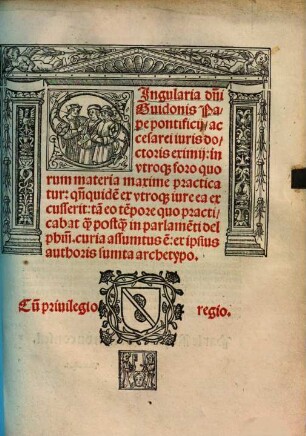 Singularia dñi
Guidonis Pa
pe pontificij/ ac
cesarei iuris do
ctoris eximij: in
vtroqȝ foro quo
rum materia maxime practica
tur: qñquidẽ ex vtroqȝ iure ea ex
cusserit: tã eo tẽpore quo practi
cabat q̃ postq̃ in parlamẽti del
phiñ. curia assumtus ẽ: ex ipsius
authoris sumta archetypo.
Cũ priuilegio regio.